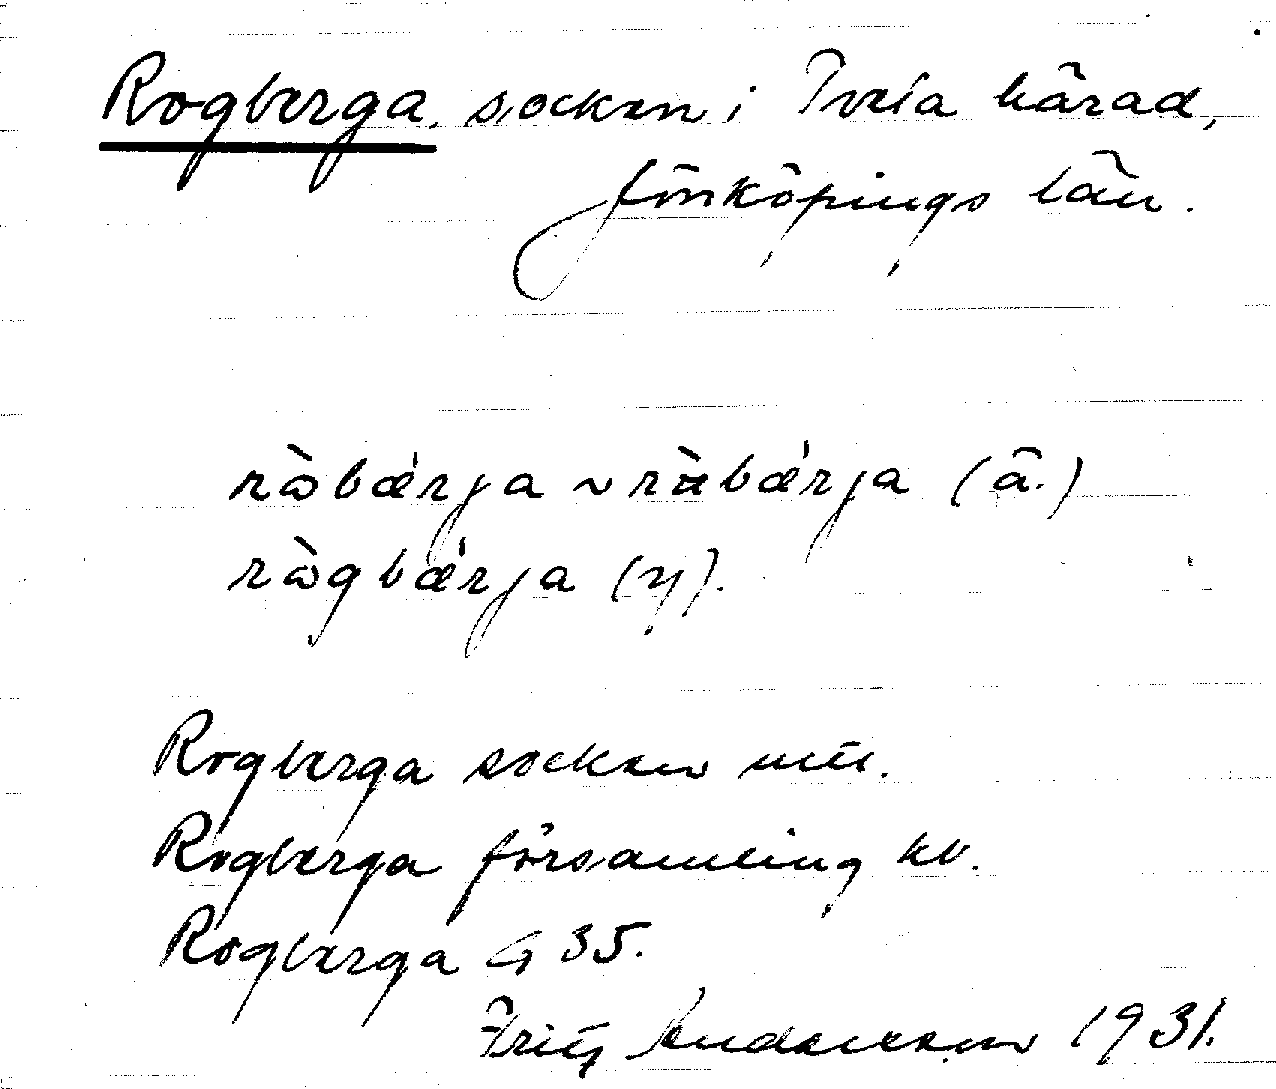 Rogberga, socken i Tveta härad,
Jönköpings län.
rɷ̀bǽrja ~ rʉ̀bǽrja (ä.)
rɷ̀gbǽrja (y).
Rogberga socken
Rogberga församling kv.
Rogberga G 35.
Fritz Andersson 1931.